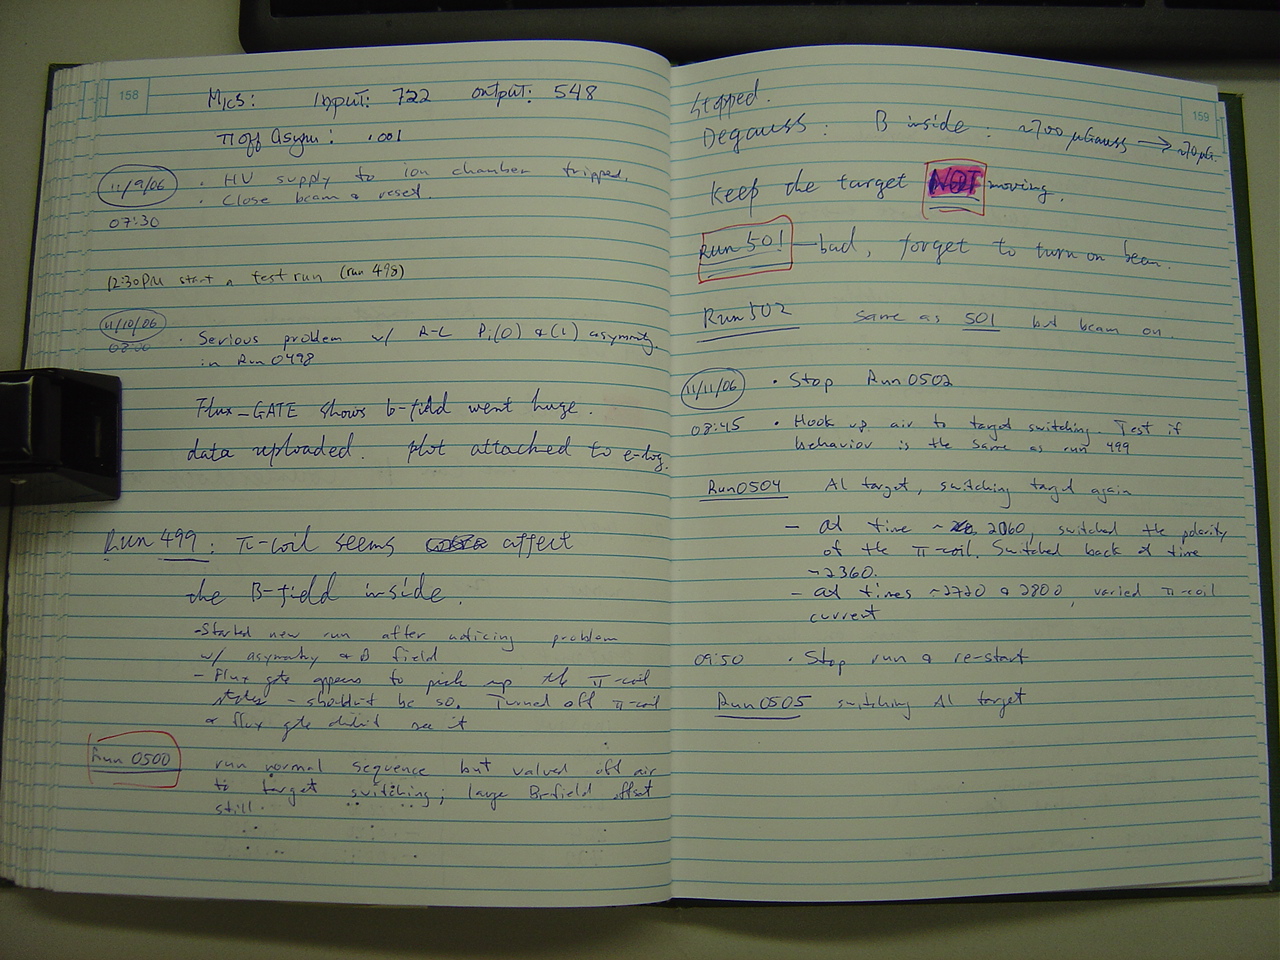 158
MICS: Input: 722 output: 548
π off Asym: .001
11/9/06 · HV supply to ion chamber tripped.
· Close beam & reset.
07:30
12:30PM start a test run (run 498)
11/10/06
08:00 · Serious problem w/ A-L Pi(0) & (1) asymmetry
in Run 0498
Flux-GATE shows b-field went huge.
data uploaded. plot attached to e-log.
Run 499: π-coil seems affect
the B-field inside.
- Started new run after noticing problem
w/ asymmetry & B field
- Flux gate appears to pick up the π-coil
- shouldn't be so. Turned off π-coil
& flux gate didn't see it
Run 0500 run normal sequence but valved off air
to target switching; large B-field offset
still.
159
Stopped.
Degauss: B inside: ~700 μGauss → ~70 μG.
Keep the target NOT moving.
Run 501 — bad, forget to turn on beam.
Run 502 same as 501 but beam on.
11/11/06 · Stop Run 0502
08:45 · Hook up air to target switching. Test if
behavior is the same as run 499
Run 0504 Al target, switching target again
- at time ~ 2060, switched the polarity
of the π-coil. Switched back at time
~2360.
- at times ~2720 & 2800, varied π-coil
current
09:50 · Stop run & re-start
Run 0505 switching Al target